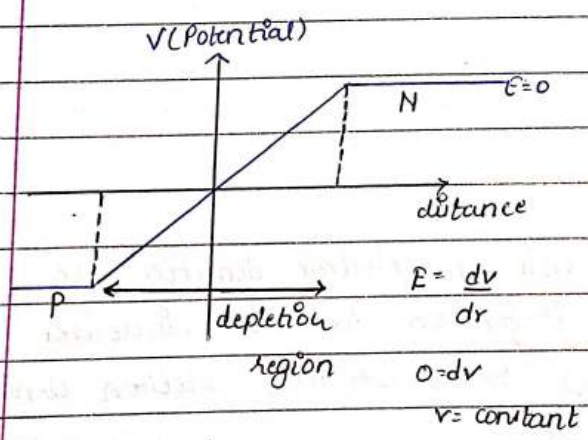 V(Potential)
N
E=0
distance
P
depletion
region
E = dv/dr
0=dv
v= constant